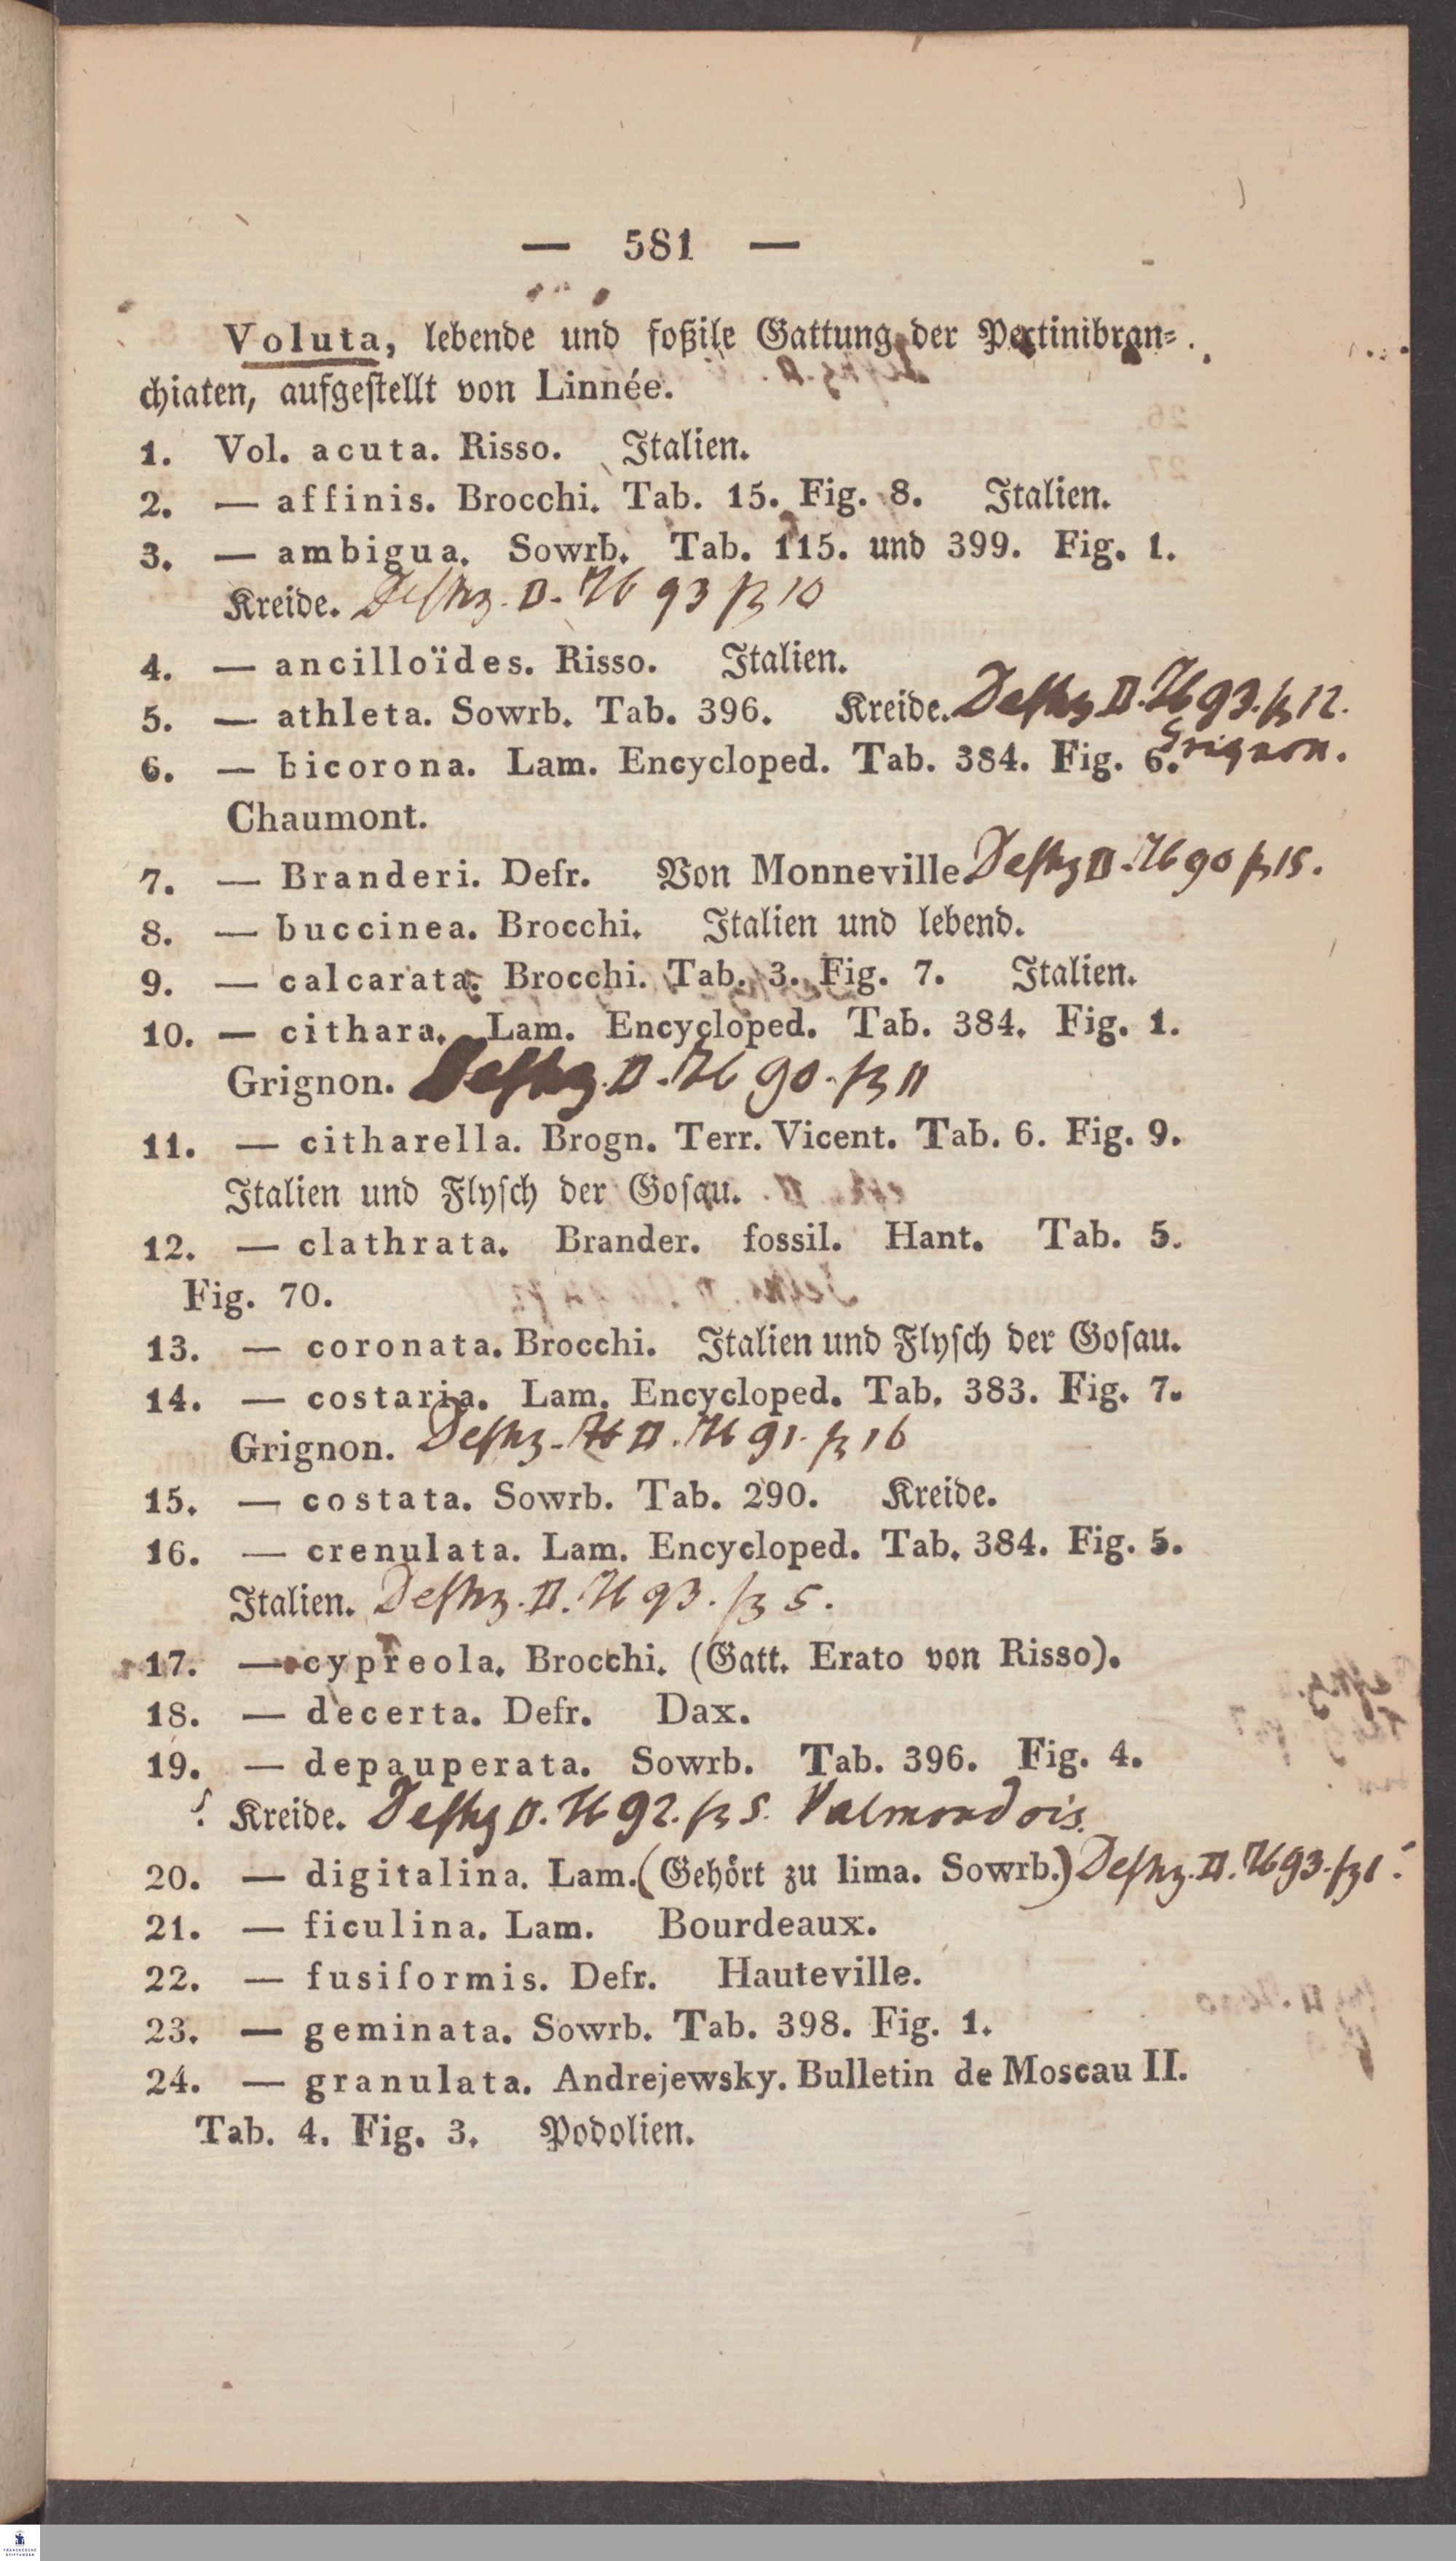 — 581 —
Voluta, lebende und foßile Gattung der Pectinibran⸗
chiaten, aufgestellt von Linnée.
1. Vol. acuta. Risso. Italien.
2. — affinis. Brocchi. Tab. 15. Fig. 8. Italien.
3. — ambigua. Sowrb. Tab. 115. und 399. Fig. 1.
Kreide. Deshz. II. Tb 93 fg 10
4. — ancilloïdes. Risso. Italien.
5. — athleta. Sowrb. Tab. 396. Kreide. Deshz II. Tb 93. fg 12.
Grignon.
6. — bicorona. Lam. Encycloped. Tab. 384. Fig. 6.
Chaumont.
7. — Branderi. Defr. Von Monneville. Deshz II. Tb 90 fg 15.
8. — buccinea. Brocchi. Italien und lebend.
9. — calcarata. Brocchi. Tab. 3. Fig. 7. Italien.
10. — cithara. Lam. Encycloped. Tab. 384. Fig. 1.
Grignon. Deshz. II. Tb 90. fg 11
11. — citharella. Brogn. Terr. Vicent. Tab. 6. Fig. 9.
Italien und Flysch der Gosau.
12. — clathrata. Brander. fossil. Hant. Tab. 5.
Fig. 70.
13. — coronata. Brocchi. Italien und Flysch der Gosau.
14. — costaria. Lam. Encycloped. Tab. 383. Fig. 7.
Grignon. Deshz. II. Tb 91. fg 16
15. — costata. Sowrb. Tab. 290. Kreide.
16. — crenulata. Lam. Encycloped. Tab. 384. Fig. 5.
Italien. Deshz. II. Tb 93. fg 5.
17. — cypreola. Brocchi. (Gatt. Erato von Risso).
18. — decerta. Defr. Dax.
19. — depauperata. Sowrb. Tab. 396. Fig. 4.
Kreide. Deshz II. Tb 92. fg 5. Valmondois.
20. — digitalina. Lam. (Gehört zu lima. Sowrb.) Deshz. II. Tb 93. fg 1.
21. — ficulina. Lam. Bourdeaux.
22. — fusiformis. Defr. Hauteville.
23. — geminata. Sowrb. Tab. 398. Fig. 1.
24. — granulata. Andrejewsky. Bulletin de Moscau II.
Tab. 4. Fig. 3. Podolien.